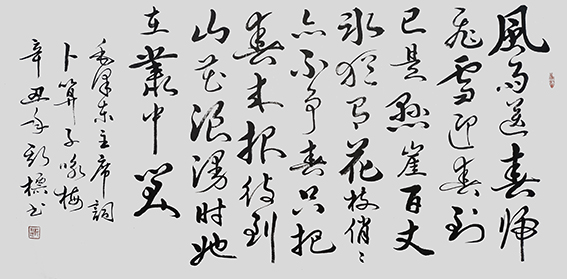 風雨送春归
飛雪迎春到
已是懸崖百丈
冰猶有花枝俏〻
亦不争春只把
春来报待到
山花浪漫时她
在叢中笑
毛澤東主席詞
卜算子咏梅
辛丑年標书